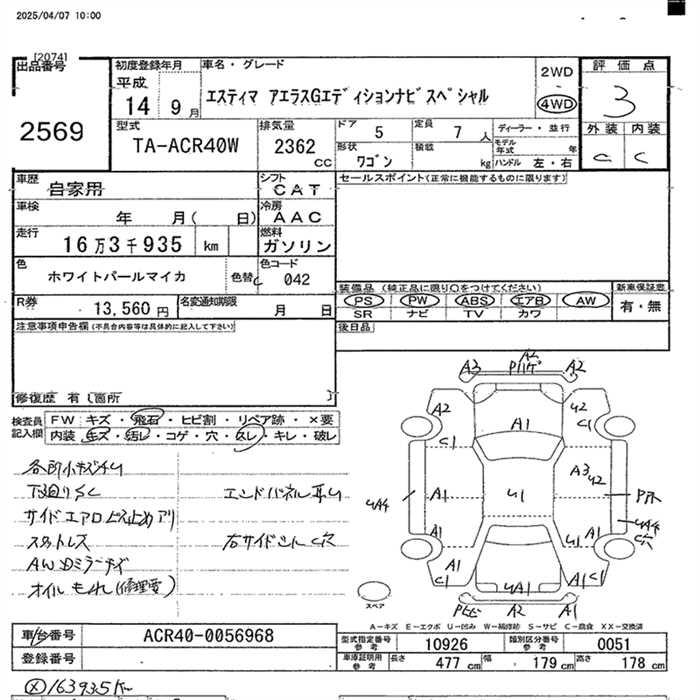 2025/04/07 10:00
[2074]
出品番号
2569
初度登録年月
平成
14 9月
車名・グレード
エスティマ アエラスGエディションナビスペシャル
2WD
4WD
評価点
3
外装 内装
C C
型式
TA-ACR40W
排気量
2362
CC
ドア 5
定員 7人
形状 ワゴン
積載 kg
ディーラー・並行
モデル年式 年
ハンドル 左・右
車歴 自家用
シフト CAT
車検 年 月( 日)
冷房 AAC
走行 16万3千935 km
燃料 ガソリン
色 ホワイトパールマイカ
色替 C
色コード 042
R券 13,560円
名変通知期限 月 日
セールスポイント(正常に機能するものに限ります)
装備品(純正品に限り○をつけてください)
PS PW ABS エアB AW
SR ナビ TV カワ
新車保証書
有・無
後日品
注意事項申告欄(不具合内容等は具体的に記入して下さい)
修復歴 有〔箇所 〕
検査員記入欄
FW キズ・飛石・ヒビ割・リペア跡・×要
内装 キズ・汚レ・コゲ・穴・スレ・キレ・破レ
各部小キズ
下廻りSC
サイドエアロビス止めアリ
スタットレス
AWDミラーキズ
オイルもれ(修理要)
エンドパネル
右サイド C穴
A3 A2 A2
A2 U2
C1 A1 C1
A3 U2
UA4 A1 U1
UA4 C穴
A1 A1
U1
A1 C1 UA1 A1 C1
A2 A1
スペア
A−キズ E−エクボ U−凹み W−補修跡 S−サビ C−腐食 XX−交換済
車台番号 ACR40-0056968
登録番号
型式指定番号参考 10926
類別区分番号参考 0051
車庫証明用参考
長さ 477 cm
幅 179 cm
高さ 178 cm
163935K